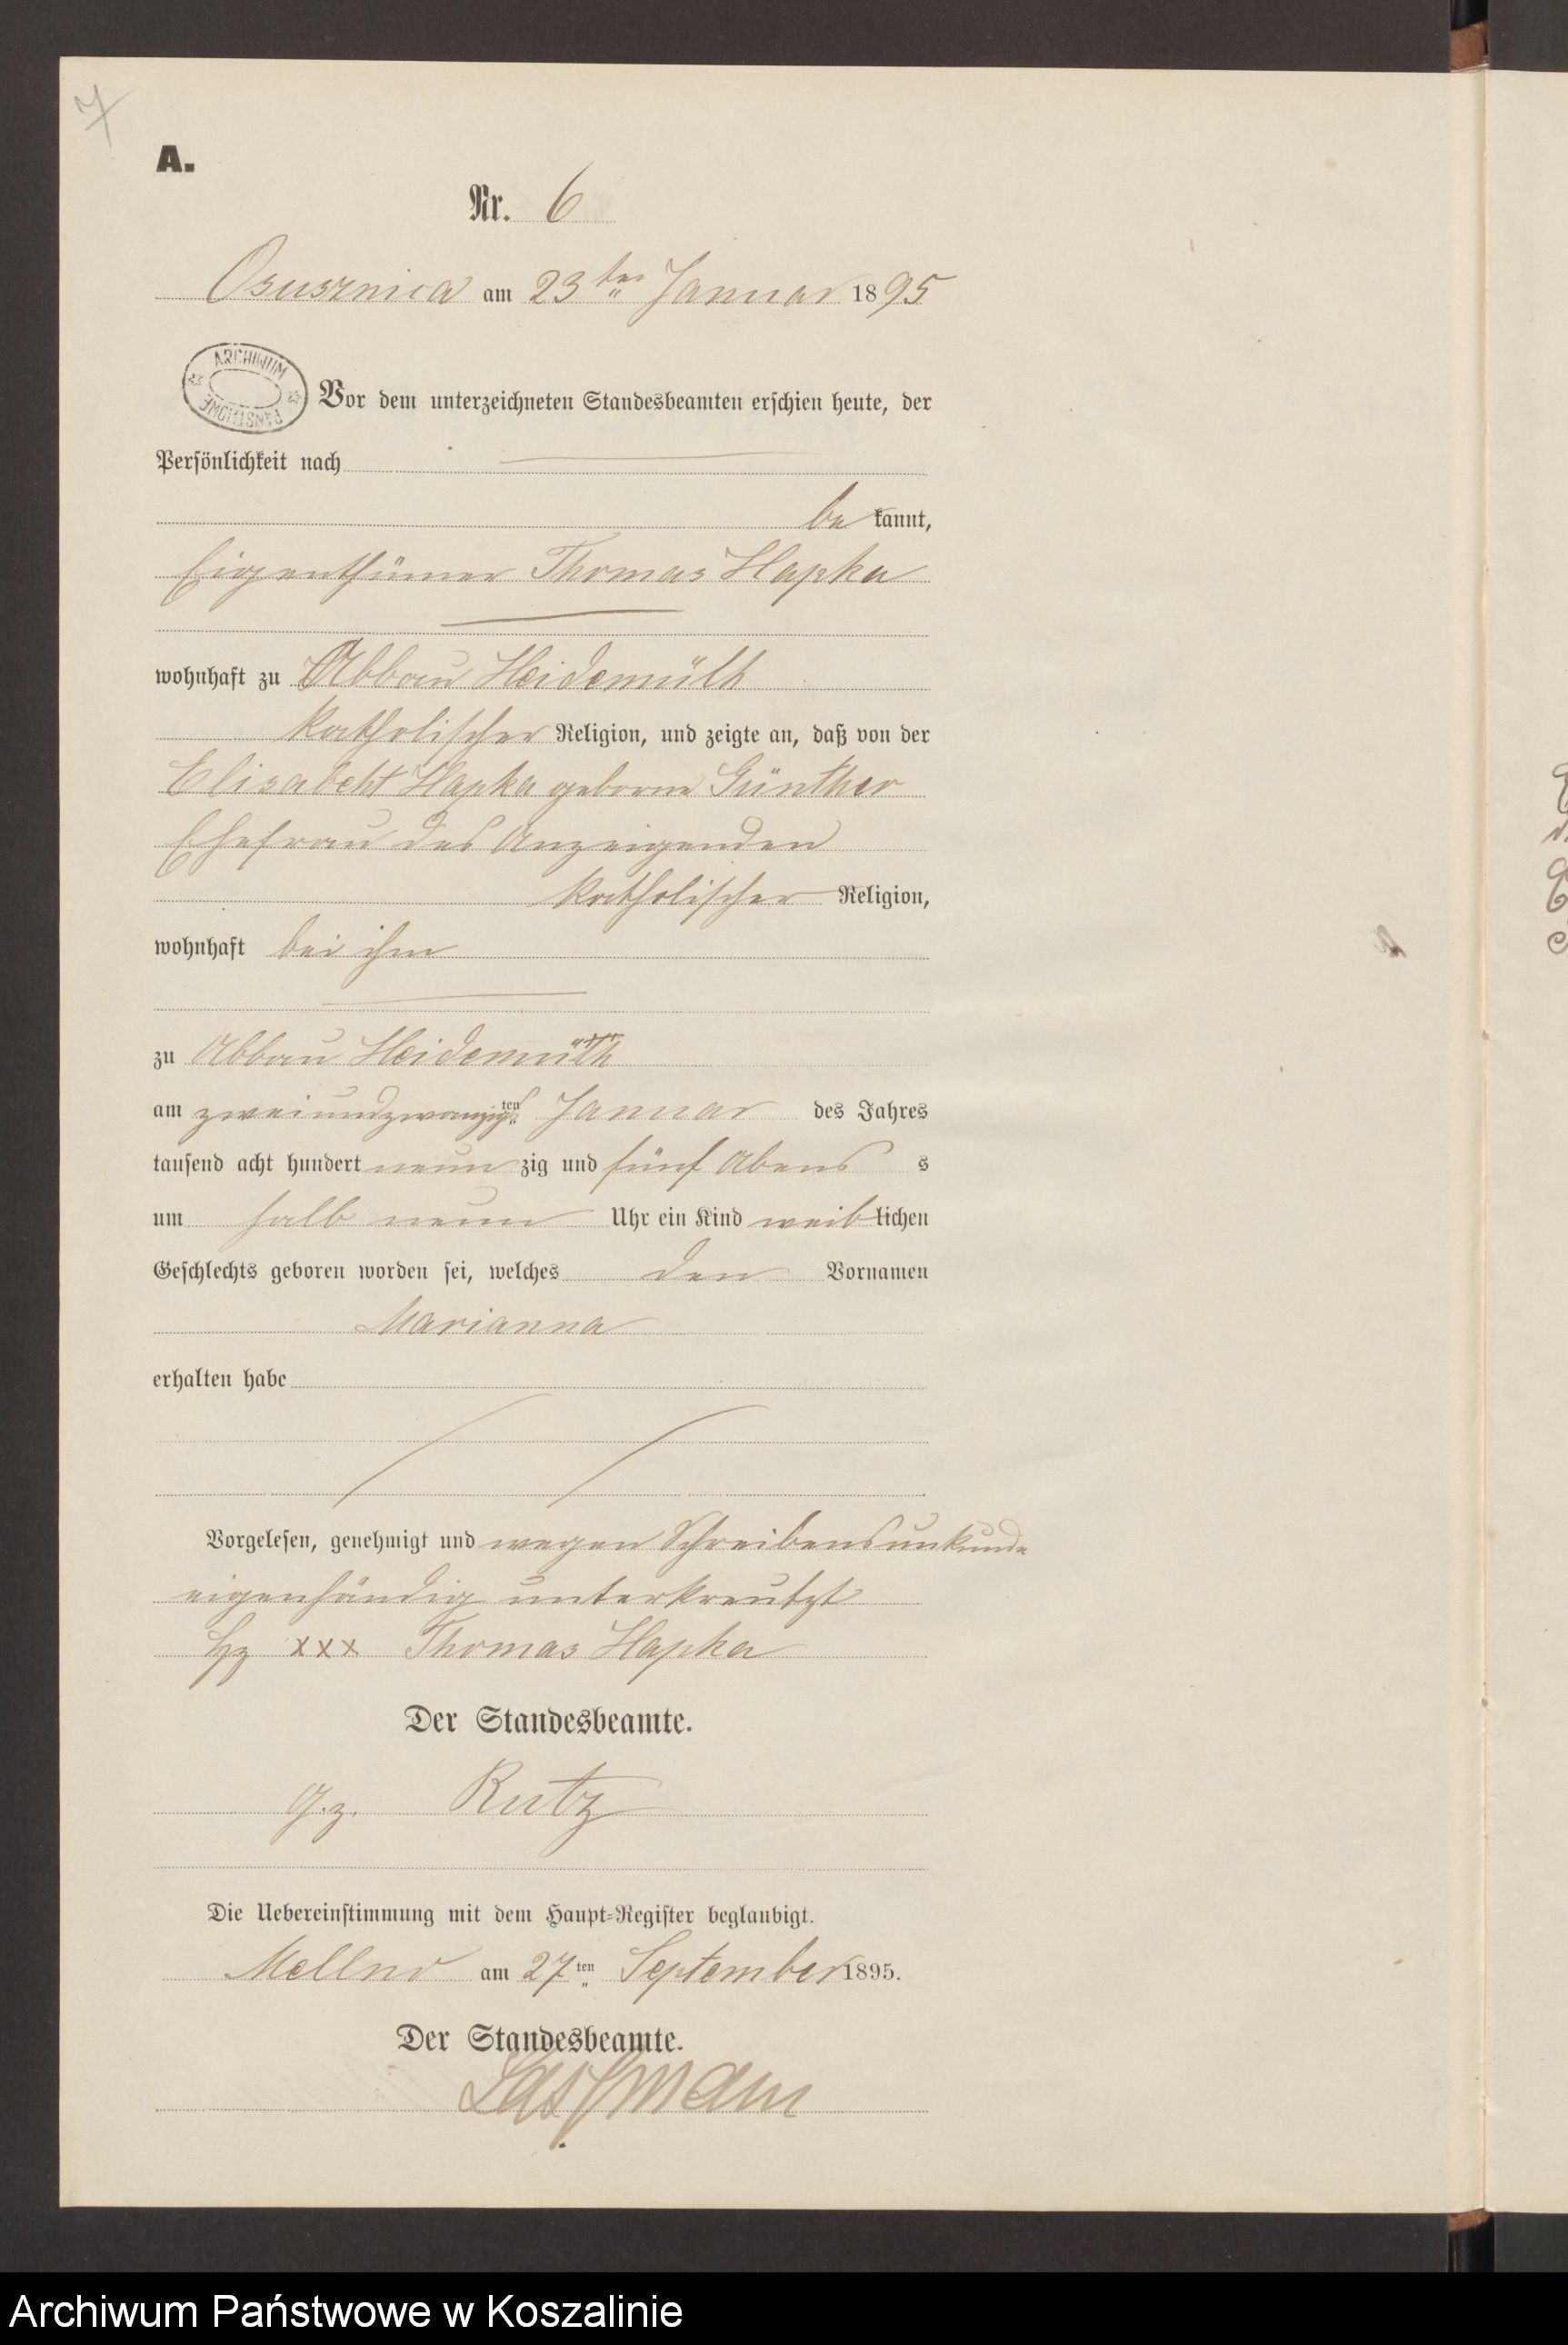 7
A.
Nr. 6
Osusznica am 23ten Januar 1895
ARCHIWUM PAŃSTWOWE
Vor dem unterzeichneten Standesbeamten erschien heute, der
Persönlichkeit nach
be kannt,
Eigenthümer Thomas Hapka
wohnhaft zu Abbau Heidemühl
katholischer Religion, und zeigte an, daß von der
Elisabeht Hapka geborne Günther
Ehefrau des Anzeigenden
katholischer Religion,
wohnhaft bei ihm
zu Abbau
am zweiundzwanzigsten Januar des Jahres
tausend acht hundert neun zig und fünf Abens s
um halb neun Uhr ein Kind weiblichen
Geschlechts geboren worden sei, welches den Vornamen
Marianna
erhalten habe
Vorgelesen, genehmigt und wegen Schreibensunkunde
eigenhändig unterkreutzt
Hz xxx Thomas Hapka
Der Standesbeamte.
gz. Rutz
Die Uebereinstimmung mit dem Haupt-Register beglaubigt.
Mellno am 27ten September 1895.
Der Standesbeamte.
Archiwum Państwowe w Koszalinie